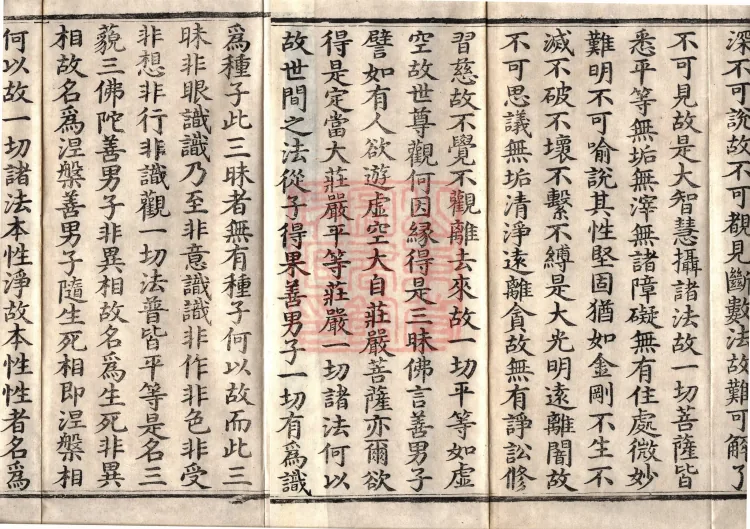 深不可說故不可覩見斷數法故難可解了
不可見故是大智慧攝諸法故一切菩薩皆
悉平等無垢無滓無諸障礙無有住處微妙
難明不可喻說其性堅固猶如金剛不生不
滅不破不壞不繫不縛是大光明遠離闇故
不可思議無垢清淨遠離貪故無有諍訟修
習慈故不覺不觀離去來故一切平等如虛
空故世尊觀何因緣得是三昧佛言善男子
譬如有人欲遊虛空大自莊嚴菩薩亦爾欲
得是定當大莊嚴平等莊嚴一切諸法何以
故世間之法從子得果善男子一切有為識
為種子此三昧者無有種子何以故而此三
昧非眼識識乃至非意識識非作非色非受
非想非行非識觀一切法普皆平等是名三
藐三佛陀善男子非異相故名為生死非異
相故名為涅槃善男子隨生死相即涅槃相
何以故一切諸法本性淨故本性性者名為